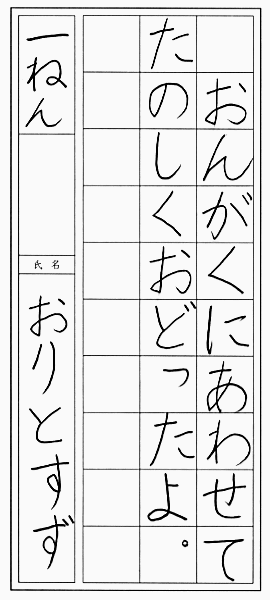 おんがくにあわせて
たのしくおどったよ。
一ねん
氏名
おりとすず